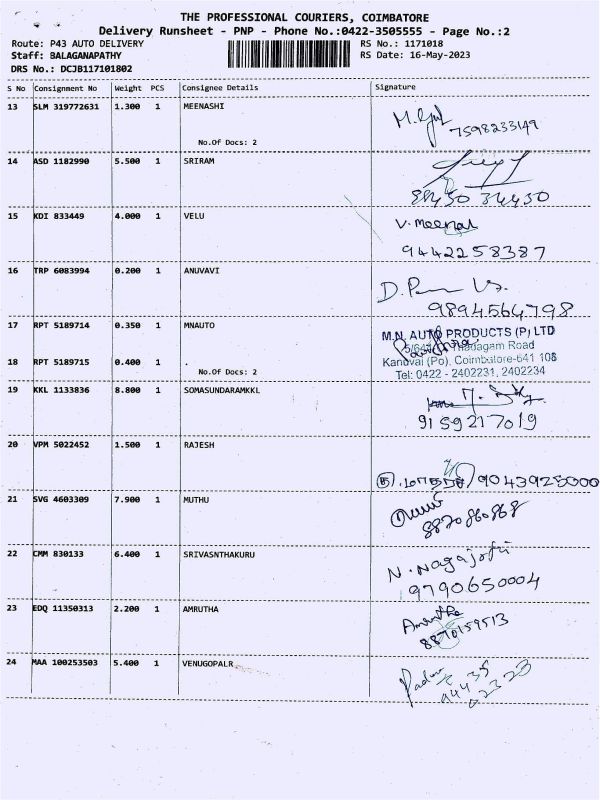 THE PROFESSIONAL COURIERS, COIMBATORE
Delivery Runsheet - PNP - Phone No.:0422-3505555 - Page No.:2
Route: P43 AUTO DELIVERY RS No.: 1171018
Staff: BALAGANAPATHY RS Date: 16-May-2023
DRS No.: DCJB117101802
S No Consignment No Weight PCS Consignee Details Signature
13 SLM 319772631 1.300 1 MEENASHI
7598233149
No.Of Docs: 2
14 ASD 1182990 5.500 1 SRIRAM
15 KDI 833449 4.000 1 VELU V. Meenal
9442258387
16 TRP 6083994 0.200 1 ANUVAVI
9894564798
17 RPT 5189714 0.350 1 MNAUTO M.N. AUTO PRODUCTS (P) LTD
Road
18 RPT 5189715 0.400 1 Kanuvai (Po), Coimbatore-641 108
No.Of Docs: 2 Tel: 0422 - 2402231, 2402234
19 KKL 1133836 8.800 1 SOMASUNDARAMKKL
9159217019
20 VPM 5022452 1.500 1 RAJESH
9043925000
21 SVG 4603309 7.900 1 MUTHU
22 CMM 830133 6.400 1 SRIVASNTHAKURU N. Nagajothi
9790650004
23 EDQ 11350313 2.200 1 AMRUTHA Amrutha
8870159513
24 MAA 100253503 5.400 1 VENUGOPALR
94435
02323